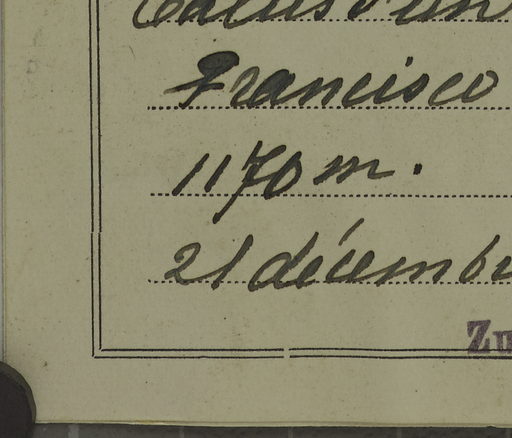 Francisco
1170 m.
21 décembr
Zu